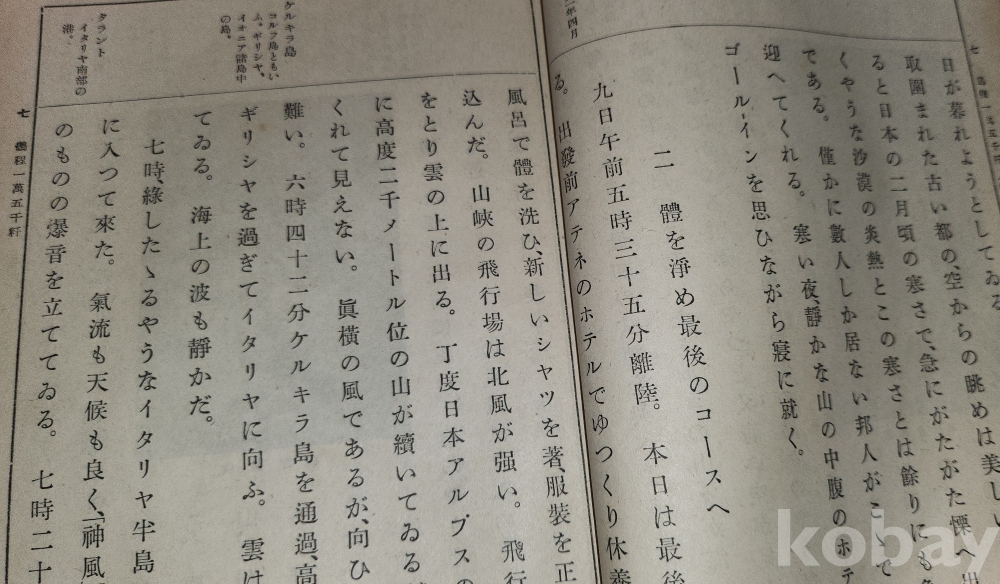 二年四月
七 鵬程一萬五千粁
日が暮れようとしてゐる
取圍まれた古い都の、空からの眺めは美しい
ると日本の二月頃の寒さで、急にがたがた慄へ出
くやうな沙漠の炎熱とこの寒さとは餘りにも
である。僅かに數人しか居ない邦人がこぞつて
迎へてくれる。寒い夜、靜かな山の中腹のホテ
ゴール・インを思ひながら寢に就く。
二 體を淨め最後のコースへ
九日午前五時三十五分離陸。本日は最後
る。出發前アテネのホテルでゆつくり休養
風呂で體を洗ひ、新しいシャツを著、服裝を正
込んだ。山峽の飛行場は北風が强い。飛行
をとり雲の上に出る。丁度日本アルプスの
に高度二千メートル位の山が續いてゐる
くれて見えない。眞横の風であるが、向ひ
難い。六時四十二分ケルキラ島を通過、高
ギリシヤを過ぎてイタリヤに向ふ。雲は
てゐる。海上の波も靜かだ。
七時、綠したゝるやうなイタリヤ半島
に入つて來た。氣流も天候も良く、「神風
のものの爆音を立ててゐる。七時二十
ケルキラ島
コルフ島ともい
ふ。ギリシヤ、
イオニア諸島中
の島。
タラント
イタリヤ南部の
港。
七 鵬程一萬五千粁
kobay